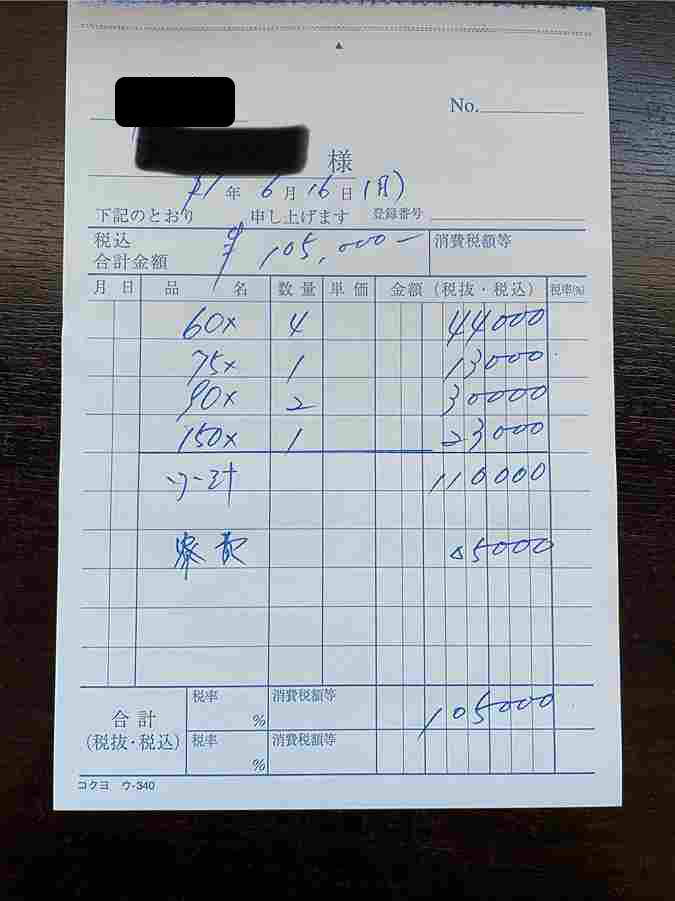 No.
様
年 6 月 16 日 (月)
下記のとおり 申し上げます 登録番号
税込 合計金額 ¥105,000- 消費税額等
月 日 品 名 数量 単価 金額 (税抜・税込) 税率(%)
60× 4 44000
75× 1 13000
90× 2 30000
150× 1 23000
小計 110000
寮費 △5000
合計 (税抜・税込) 税率 % 消費税額等 105000
税率 % 消費税額等
コクヨ ウ-340